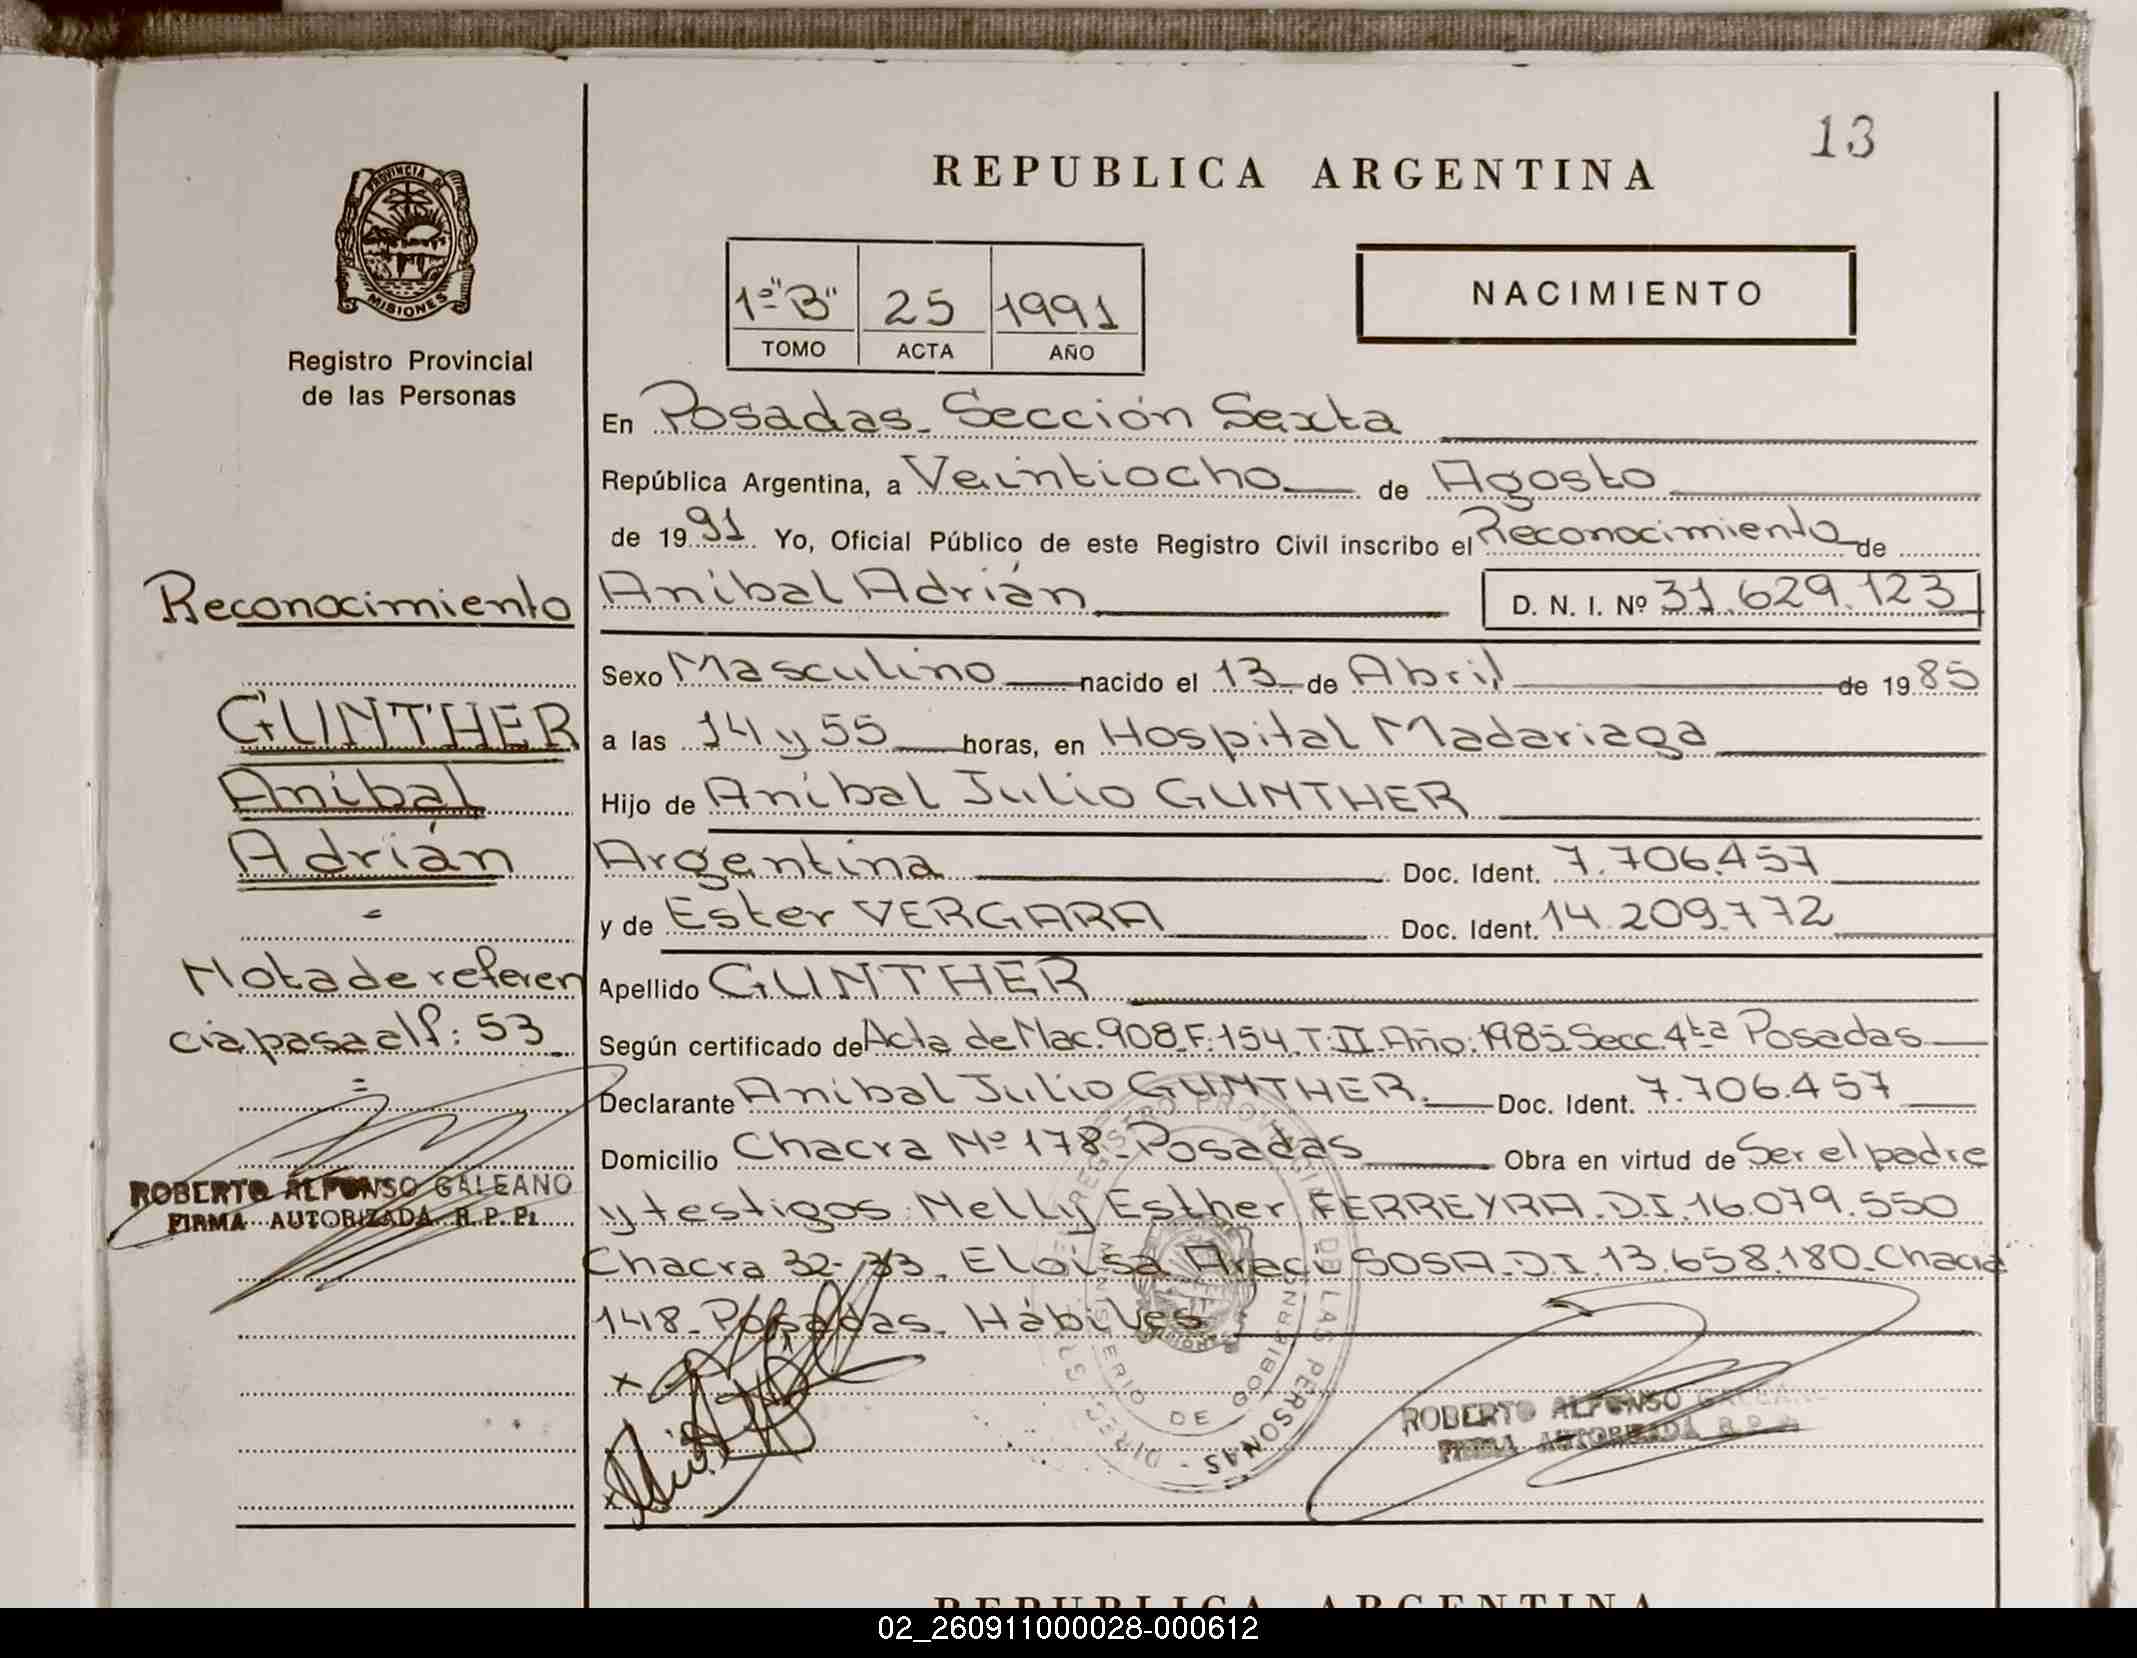 13
REPUBLICA ARGENTINA
PROVINCIA DE
MISIONES
Registro Provincial
de las Personas
1º "B" 25 1991
TOMO ACTA AÑO
NACIMIENTO
En Posadas_ Sección Sexta
República Argentina, a Veintiocho de Agosto
de 1991. Yo, Oficial Público de este Registro Civil inscribo el Reconocimiento de
Aníbal Adrián D. N. I. Nº 31.629.123
Sexo Masculino nacido el 13 de Abril de 1985
a las 14 y 55 horas, en Hospital Madariaga
Hijo de Aníbal Julio GUNTHER
Argentina Doc. Ident. 7.706.457
y de Ester VERGARA Doc. Ident. 14.209.772
Apellido GUNTHER
Según certificado de Acta de Nac. 908_F:154_T:II_Año:1985_Secc.4ta Posadas
Declarante Aníbal Julio GUNTHER. Doc. Ident. 7.706.457
Domicilio Chacra Nº 178_Posadas Obra en virtud de Ser el padre
y testigos: Nelly Esther FERREYRA_D.I.16.079.550
Chacra 32-33. Eloísa Araci SOSA_D.I.13.658.180_Chacra
148_Posadas_ Hábiles
Reconocimiento
GUNTHER
Aníbal
Adrián
Nota de referen
cia pasa al f: 53
ROBERTO ALFONSO GALEANO
FIRMA AUTORIZADA R.P.P.
REGISTRO PROVINCIAL DE LAS PERSONAS
MINISTERIO DE GOBIERNO
ROBERTO ALFONSO GALEANO
FIRMA AUTORIZADA R.P.P.
REPUBLICA ARGENTINA
02_260911000028-000612